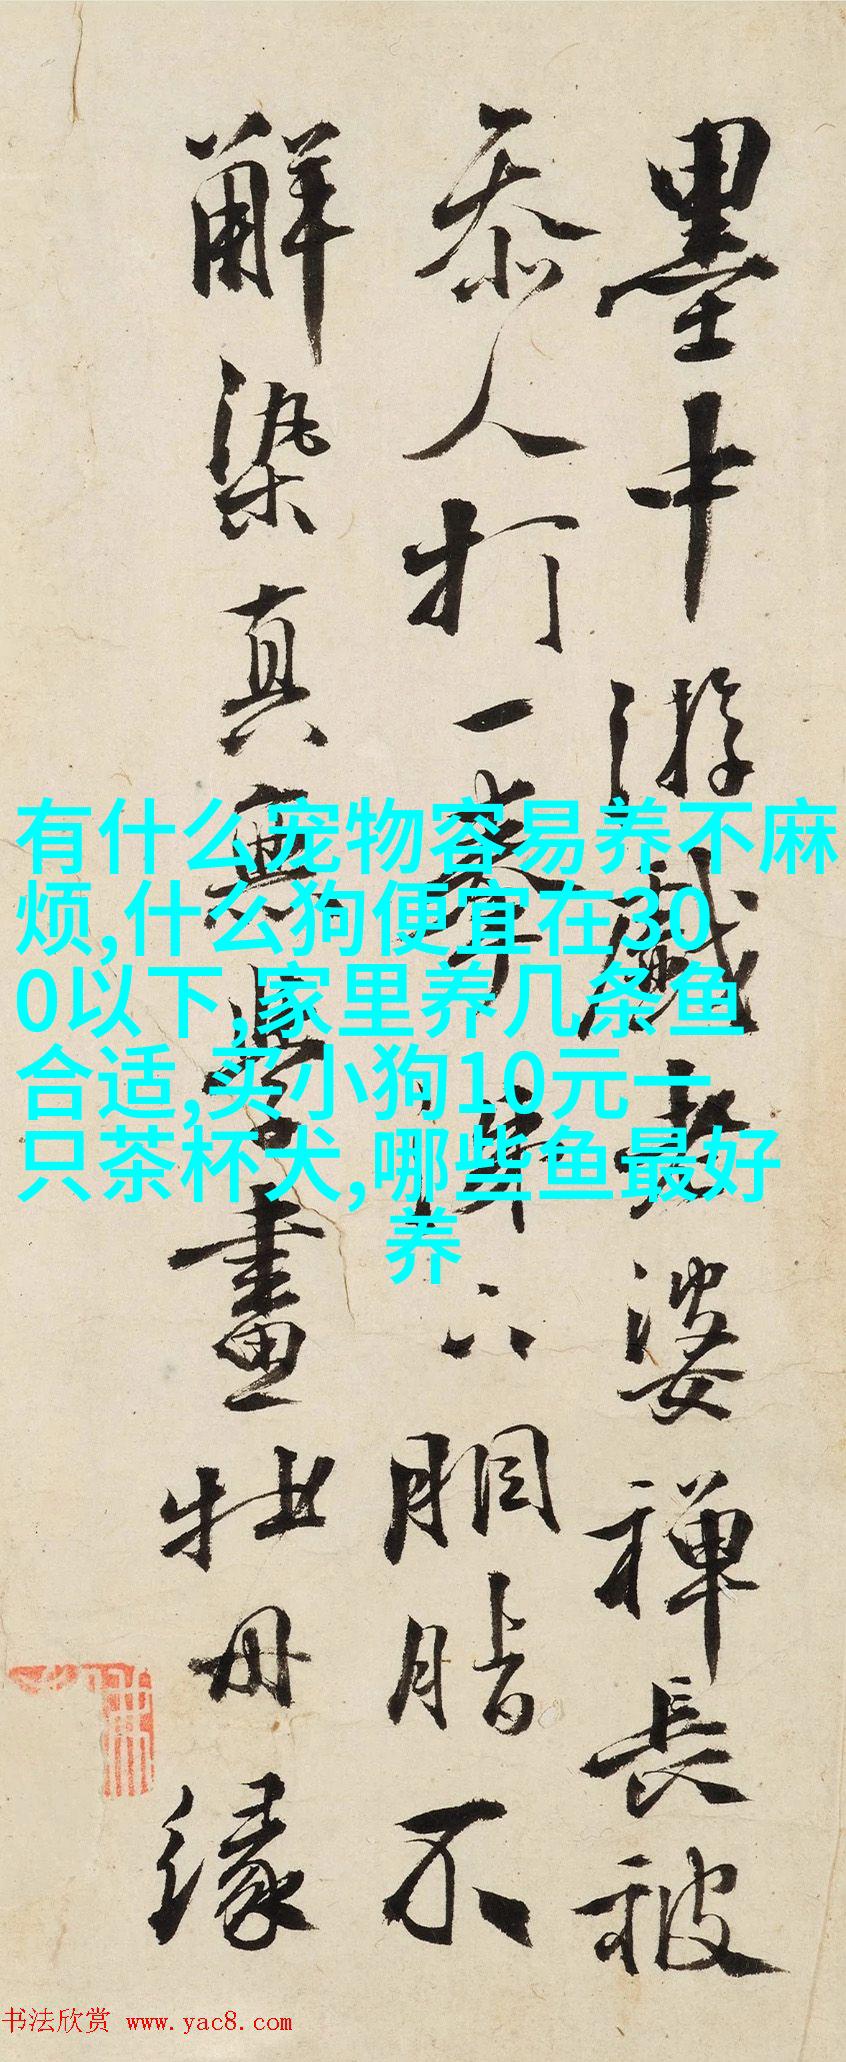 墨中游戲老婆禪長被
參人打一拳涕下胭脂不
解染真無學畫牡丹緣
有什么宠物容易养不麻
烦,什么狗便宜在30
0以下,家里养几条鱼
合适,买小狗10元一
只茶杯犬,哪些鱼最好
养
书法欣赏 www.yac8.com